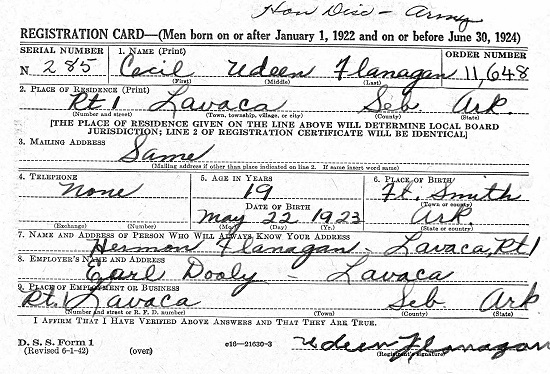 Hon Disc - Army
REGISTRATION CARD—(Men born on or after January 1, 1922 and on or before June 30, 1924)
SERIAL NUMBER 1. NAME (Print) ORDER NUMBER
N 285 Cecil Udeen Flanagan 11,648
(First) (Middle) (Last)
2. PLACE OF RESIDENCE (Print)
Rt 1 Lavaca Seb Ark.
(Number and street) (Town, township, village, or city) (County) (State)
[THE PLACE OF RESIDENCE GIVEN ON THE LINE ABOVE WILL DETERMINE LOCAL BOARD
JURISDICTION; LINE 2 OF REGISTRATION CERTIFICATE WILL BE IDENTICAL]
3. MAILING ADDRESS
Same
(Mailing address if other than place indicated on line 2. If same insert word same)
4. TELEPHONE 5. AGE IN YEARS 6. PLACE OF BIRTH
None 19 Ft. Smith
DATE OF BIRTH (Town or county)
May 22 1923 Ark.
(Exchange) (Number) (Mo.) (Day) (Yr.) (State or country)
7. NAME AND ADDRESS OF PERSON WHO WILL ALWAYS KNOW YOUR ADDRESS
Hermon Flanagan - Lavaca, Rt 1
8. EMPLOYER'S NAME AND ADDRESS
Earl Dooly - Lavaca
9. PLACE OF EMPLOYMENT OR BUSINESS
Rt. 1 Lavaca Seb Ark
(Number and street or R. F. D. number) (Town) (County) (State)
I AFFIRM THAT I HAVE VERIFIED ABOVE ANSWERS AND THAT THEY ARE TRUE.
D. S. S. Form 1
(Revised 6-1-42) (over) c16—21630-3 Udeen Flanagan
(Registrant's signature)